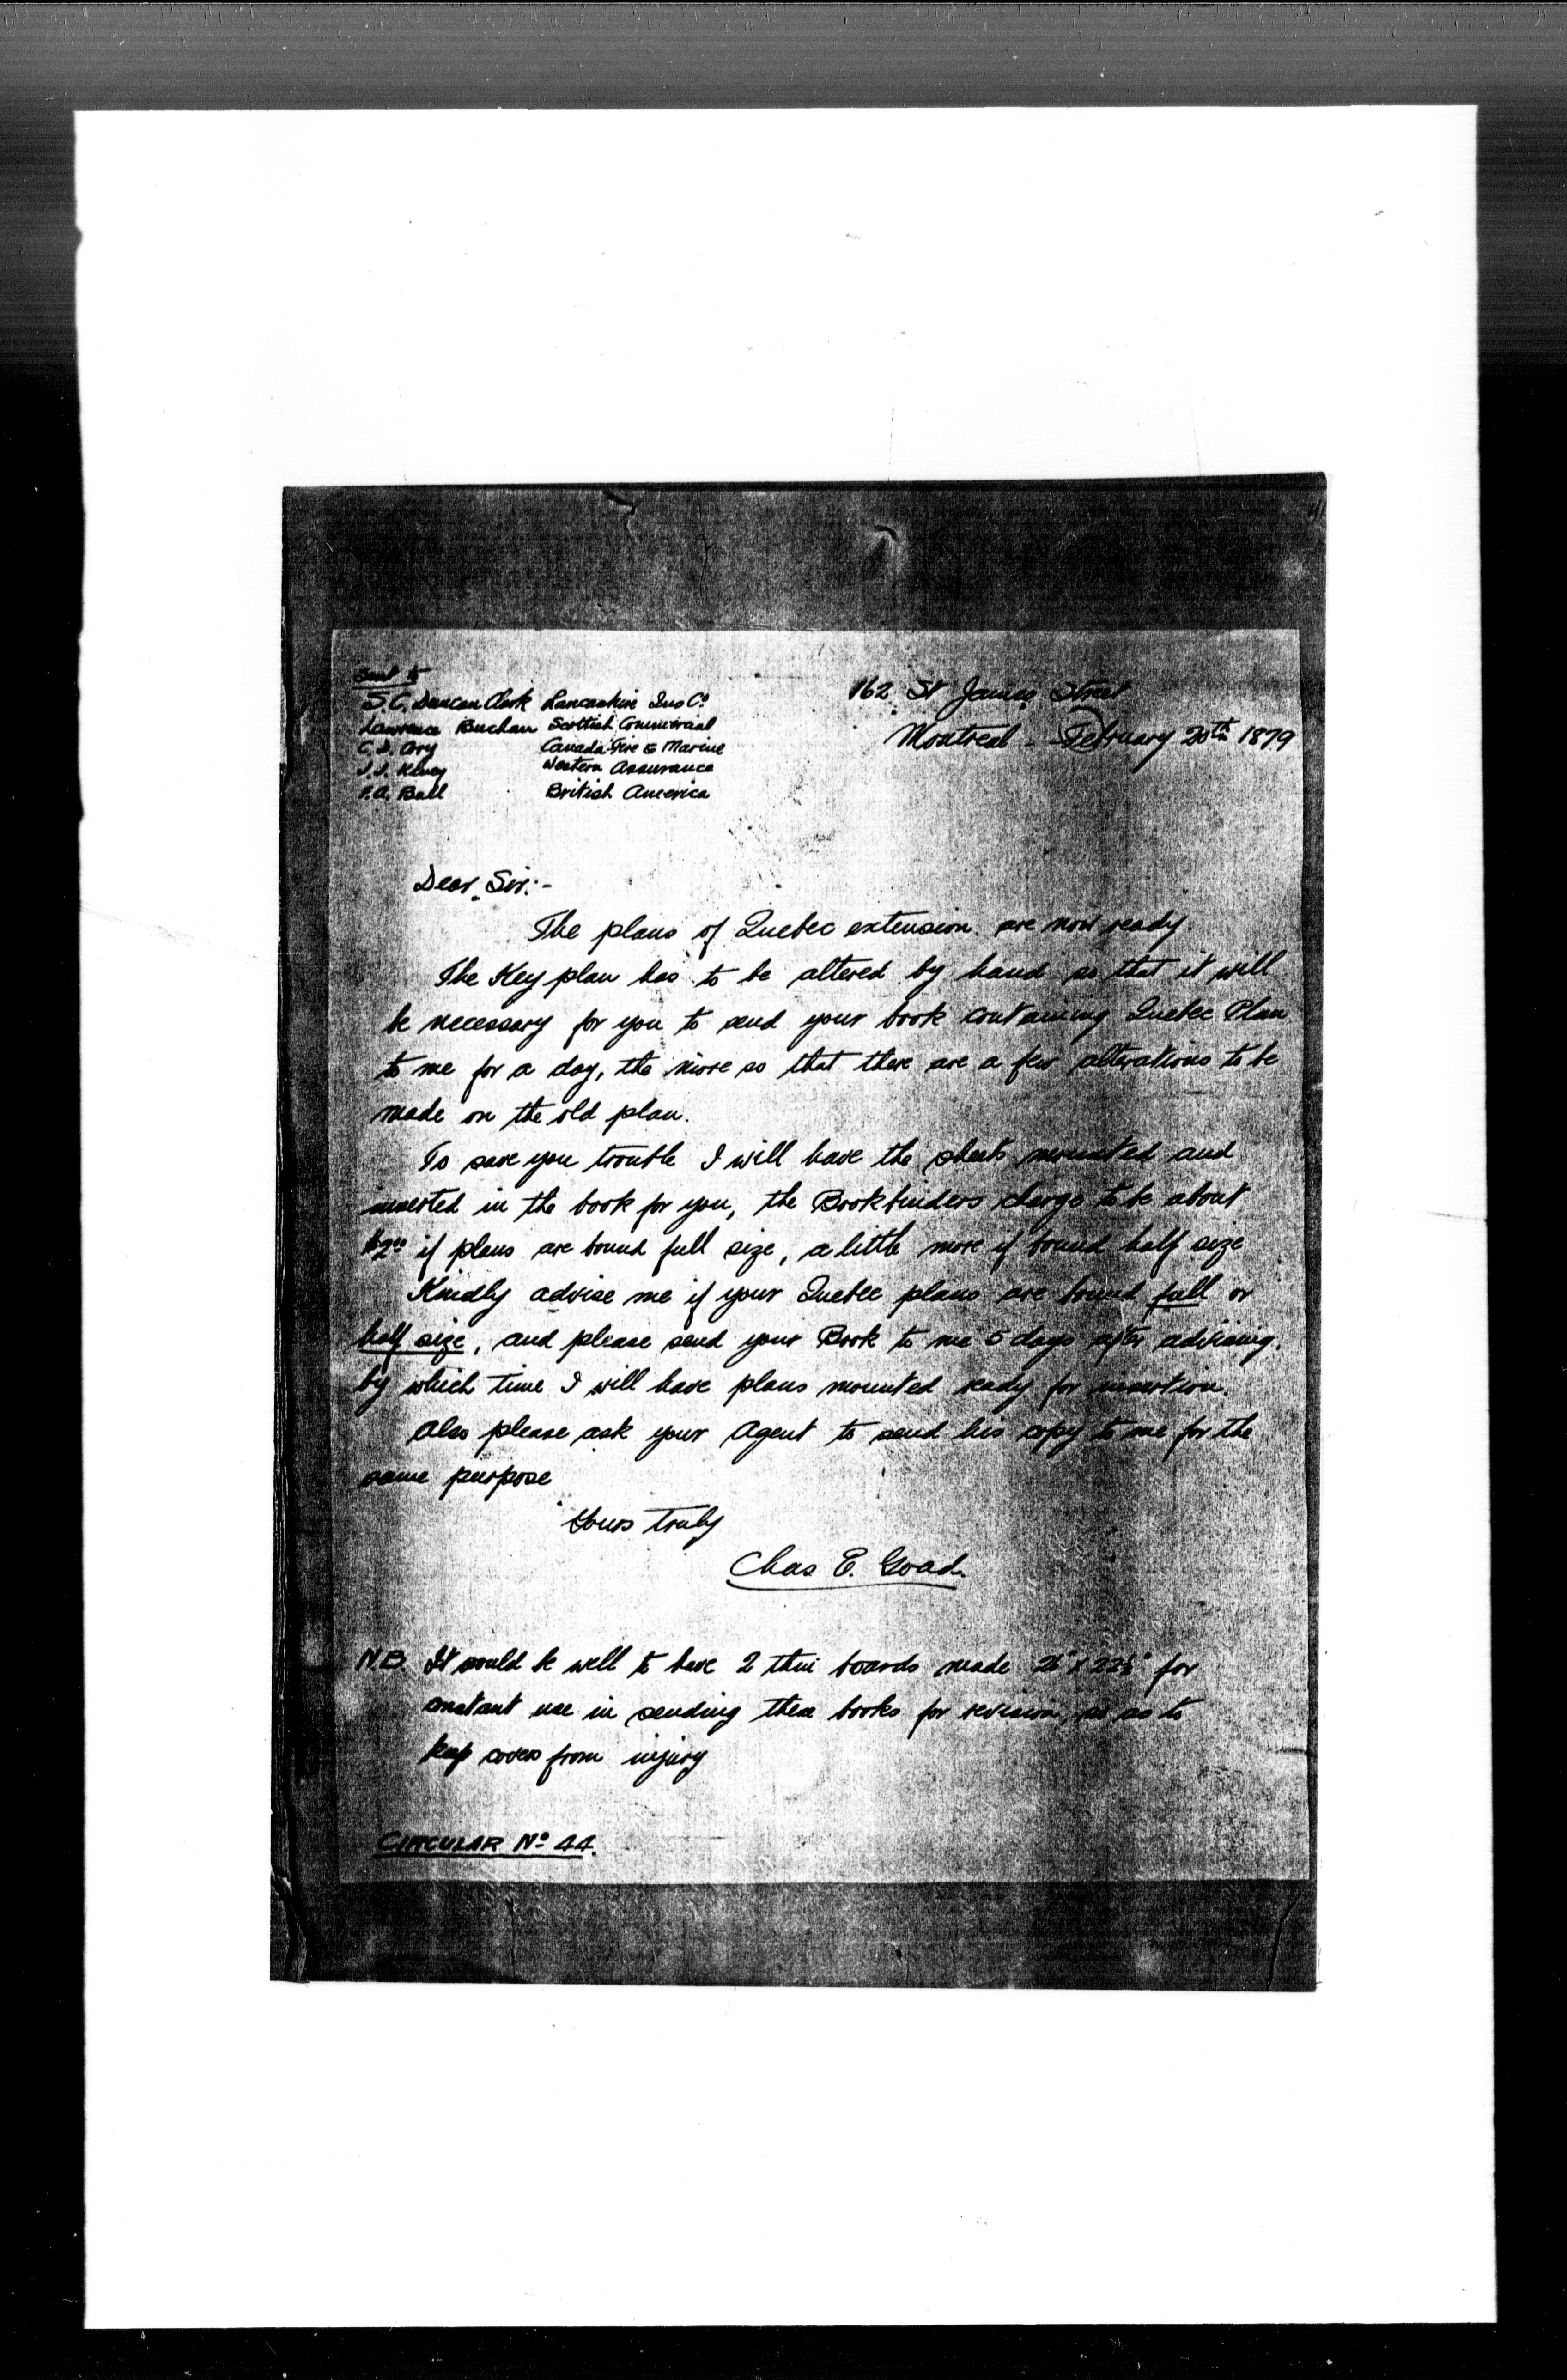 Sent to
S.C. Duncan Clark Lancashire Ins Co
Lawrence Buchan Scottish Commercial
C.D. Cory Canada Fire & Marine
J.J. Kenny Western Assurance
F.A. Ball British America
162 St James Street
Montreal - February 20th 1879
Dear Sir:-
The plans of Quebec extension are now ready
The Key plan has to be altered by hand so that it will
be necessary for you to send your book containing Quebec Plan
to me for a day, the more so that there are a few alterations to be
made on the old plan.
To save you trouble I will have the sheets mounted and
inserted in the book for you, the Bookbinders charge to be about
$2.00 if plans are bound full size, a little more if bound half size
Kindly advise me if your Quebec plans are bound full or
half size, and please send your Book to me 5 days after advising.
by which time I will have plans mounted ready for insertion.
Also please ask your Agent to send his copy to me for the
same purpose
Yours truly
Chas E. Goad.
N.B. It would be well to have 2 thin boards made 26" x 22½" for
constant use in sending these books for revision, so as to
keep covers from injury
CIRCULAR No 44.